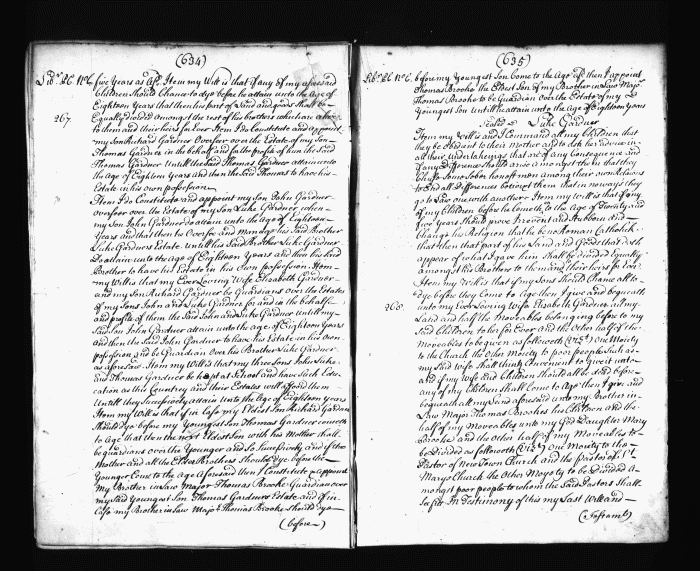 (634)
Lib. No. 6. five Years as Afs. Item my Will is that if any of my aforesaid
Children Should Chance to dye before he attain unto the Age of
Eighteen Years that then his part of Land and goods shall be
267. Equally divided amongst the rest of his brothers which are alive
to them and their heirs for ever Item I do Constitute and appoint
my Son Richard Gardner Overseer over the Estate of my Son
Thomas Gardner in the behalf and for the profit of him the said
Thomas Gardner Untill the said Thomas Gardner attain unto
the Age of Eighteen Years and then the said Thomas to have his
Estate in his own possession
Item I do Constitute and appoint my Son John Gardner
overseer over the Estate of my Son Luke Gardner when
my Son John Gardner do attain unto the Age of Eighteen
Years and that then he Oversee and Manage his Said Brother
Luke Gardners Estate Untill his Said Brother Luke Gardner
Do attain unto the age of Eighteen Years and then his said
Brother to have his Estate in his Own possession. Item
my Will is that my Ever Loving Wife Elizabeth Gardner
and my Son Richard Gardner be Guardians over the Estates
of my Sons John and Luke Gardner for and in the behalf
and profit of them the said John and Luke Gardner untill my
said Son John Gardner attain unto the age of Eighteen Years
and then the said John Gardner to have his Estate in his own
possession and be Guardian over his Brother Luke Gardner
as aforesaid. Item my Will is that my three Sons John Luke
and Thomas Gardner be kept at School and have Such Edu
cation as this Country and their Estates will afford them
Untill they Successively attain unto the Age of Eighteen years
Item my Will is that if in Case my Eldest Son Richard Gardner
Should dye before my Youngest Son Thomas Gardner cometh
to Age that then the next Eldest Son with his Mother shall
be guardians over the Younger and So Successively and if the
Mother and all the Elder Brothers Should dye before the
Younger Come to the Age Aforesaid then I Constitute & appoint
My Brother in Law Major Thomas Brooke Guardian over
my said Youngest Son Thomas Gardners Estate and if in
Case my Brother in Law Major Thomas Brooke should dye
(before)
(635)
Lib. No. 6. before my Youngest Son Come to the Age Afs. then I appoint
Thomas Brooke the Eldest Son of my Brother in Law Major
Thomas Brooke to be Guardian over the Estate of my
Youngest Son untill he attain unto the Age of Eighteen Years
Luke Gardner
Item my Will is and I Command all my Children that
they be Obedient to their Mother and to ask her advice in
all their undertakings that are of any Consequence and
if any Difference should arise amongst them that they
Chuse Some Sober honest men among their own relations
to End all Differences between them that in no ways they
go to Law one with another Item my Will is that if any
of my Children before he Cometh to the Age of Twenty and
five Years Should prove Irreverent and Stubborn and
Change his Religion that he be no Roman Catholick
that then that part of his Land and Goods that doth
appear of what I gave him Shall be divided Equally
amongst his Brothers to them and their heirs for Ever
Item my Will is that if my Sons Should Chance all to
dye before they Come to Age then I give and bequeath
268. unto my Ever Loving Wife Elizabeth Gardner all my
Land and half the Moveables belonging before to my
said Children to her for Ever and the Other half of the
Moveables to be given as followeth (Viz.) One Moiety
to the Church the Other Moiety to poor people Such as
my said Wife shall think Convenient to give it unto
and if my Wife and Children Should all be dead before
any of my Children shall Come to Age then I give and
bequeath all my Land aforesaid unto my Brother in
Law Major Thomas Brookes his Children and the
half of my Moveables unto my God Daughter Mary
Brookes and the Other half of my Moveables to
be Divided as followeth (Viz.) One Moiety to the
Pastor of New Town Church and the Pastor of St.
Marys Church the Other Moyety to be Divided a
mongst poor people to whom the said Pastors Shall
See fitt In Testimony of this my Last Will and
(Testamt.)